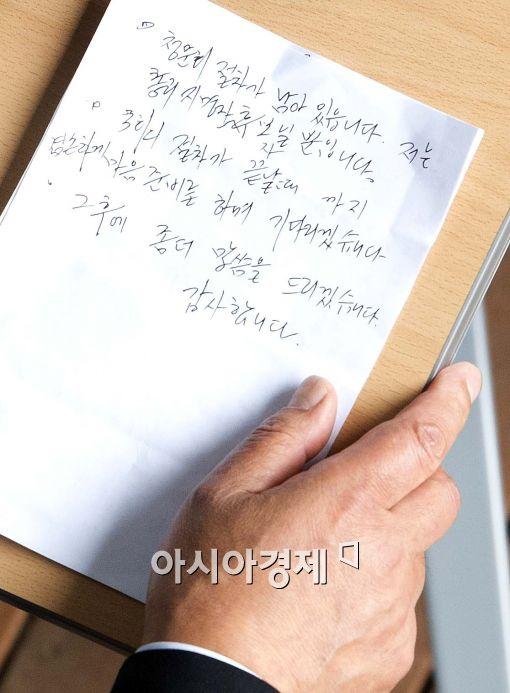 청문회 절차가 남아 있습니다. 저는
총리 지명자 후보일 뿐입니다.
국회의 절차가 끝날때 까지
담담하게 마음 준비를 하며 기다리겠습니다
그 후에 좀더 말씀을 드리겠습니다.
감사합니다.
아시아경제